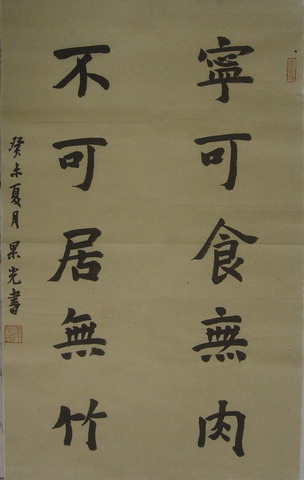 寧可食無肉
不可居無竹
癸未夏月果光書